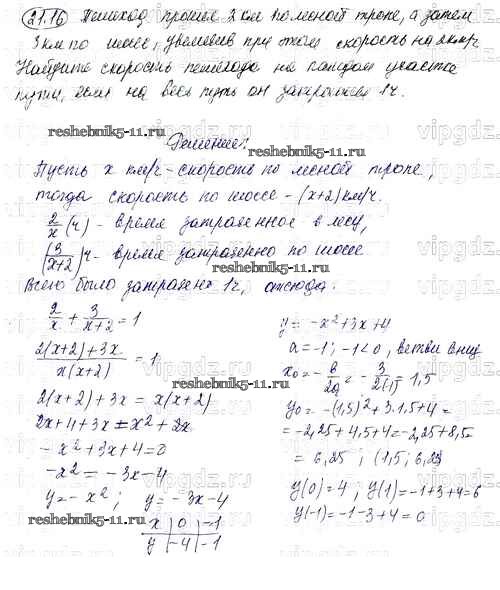 21.16 Пешеход прошел 2 км по лесной тропе, а затем
3 км по шоссе, увеличив при этом скорость на 2 км/ч
Найдите скорость пешехода на каждом участке
пути, если на весь путь он затратил 1 ч.
reshebnik5-11.ru
Решение:
Пусть x км/ч - скорость по лесной тропе,
тогда скорость по шоссе - (x+2) км/ч.
2/x (ч) - время затраченное в лесу,
(3/(x+2)) ч - время затрачено по шоссе
reshebnik5-11.ru
Всего было затрачен 1 ч, отсюда:
2/x + 3/(x+2) = 1
(2(x+2)+3x)/(x(x+2)) = 1
reshebnik5-11.ru
2(x+2)+3x = x(x+2)
2x+4+3x = x²+2x
-x²+3x+4=0
-x² = -3x-4
y = -x²; y = -3x-4
reshebnik5-11.ru
x | 0 | -1
y | -4 | -1
y = -x²+3x+4
a = -1; -1<0, ветви вниз
x₀ = -b/2a = -3/2(-1) = 1,5
y₀ = -(1,5)²+3·1,5+4=
= -2,25+4,5+4=-2,25+8,5=
= 6,25; (1,5; 6,25)
reshebnik5-11.ru
y(0)=4; y(1)=-1+3+4=6
y(-1)=-1-3+4=0
reshebnik5-11.ru
vipgdz.ru